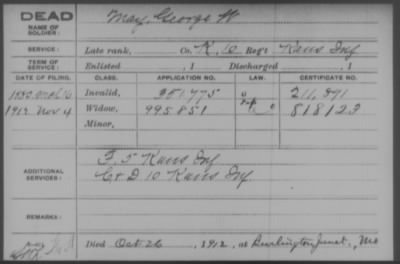 DEAD
NAME OF SOLDIER:
May, George W
SERVICE:
Late rank, Co. K, 10 Reg't Kans Inf
TERM OF SERVICE:
Enlisted , 1 Discharged , 1
DATE OF FILING. CLASS. APPLICATION NO. LAW. CERTIFICATE NO.
1880 Invalid, 351,775
1912 Nov 4 Widow, 995,851 818123
Minor,
ADDITIONAL SERVICES:
F. 5 Kans Inf
C & D 10 Kans Inf
REMARKS:
Died Oct 26, 1912, at Burlington Junct., Mo